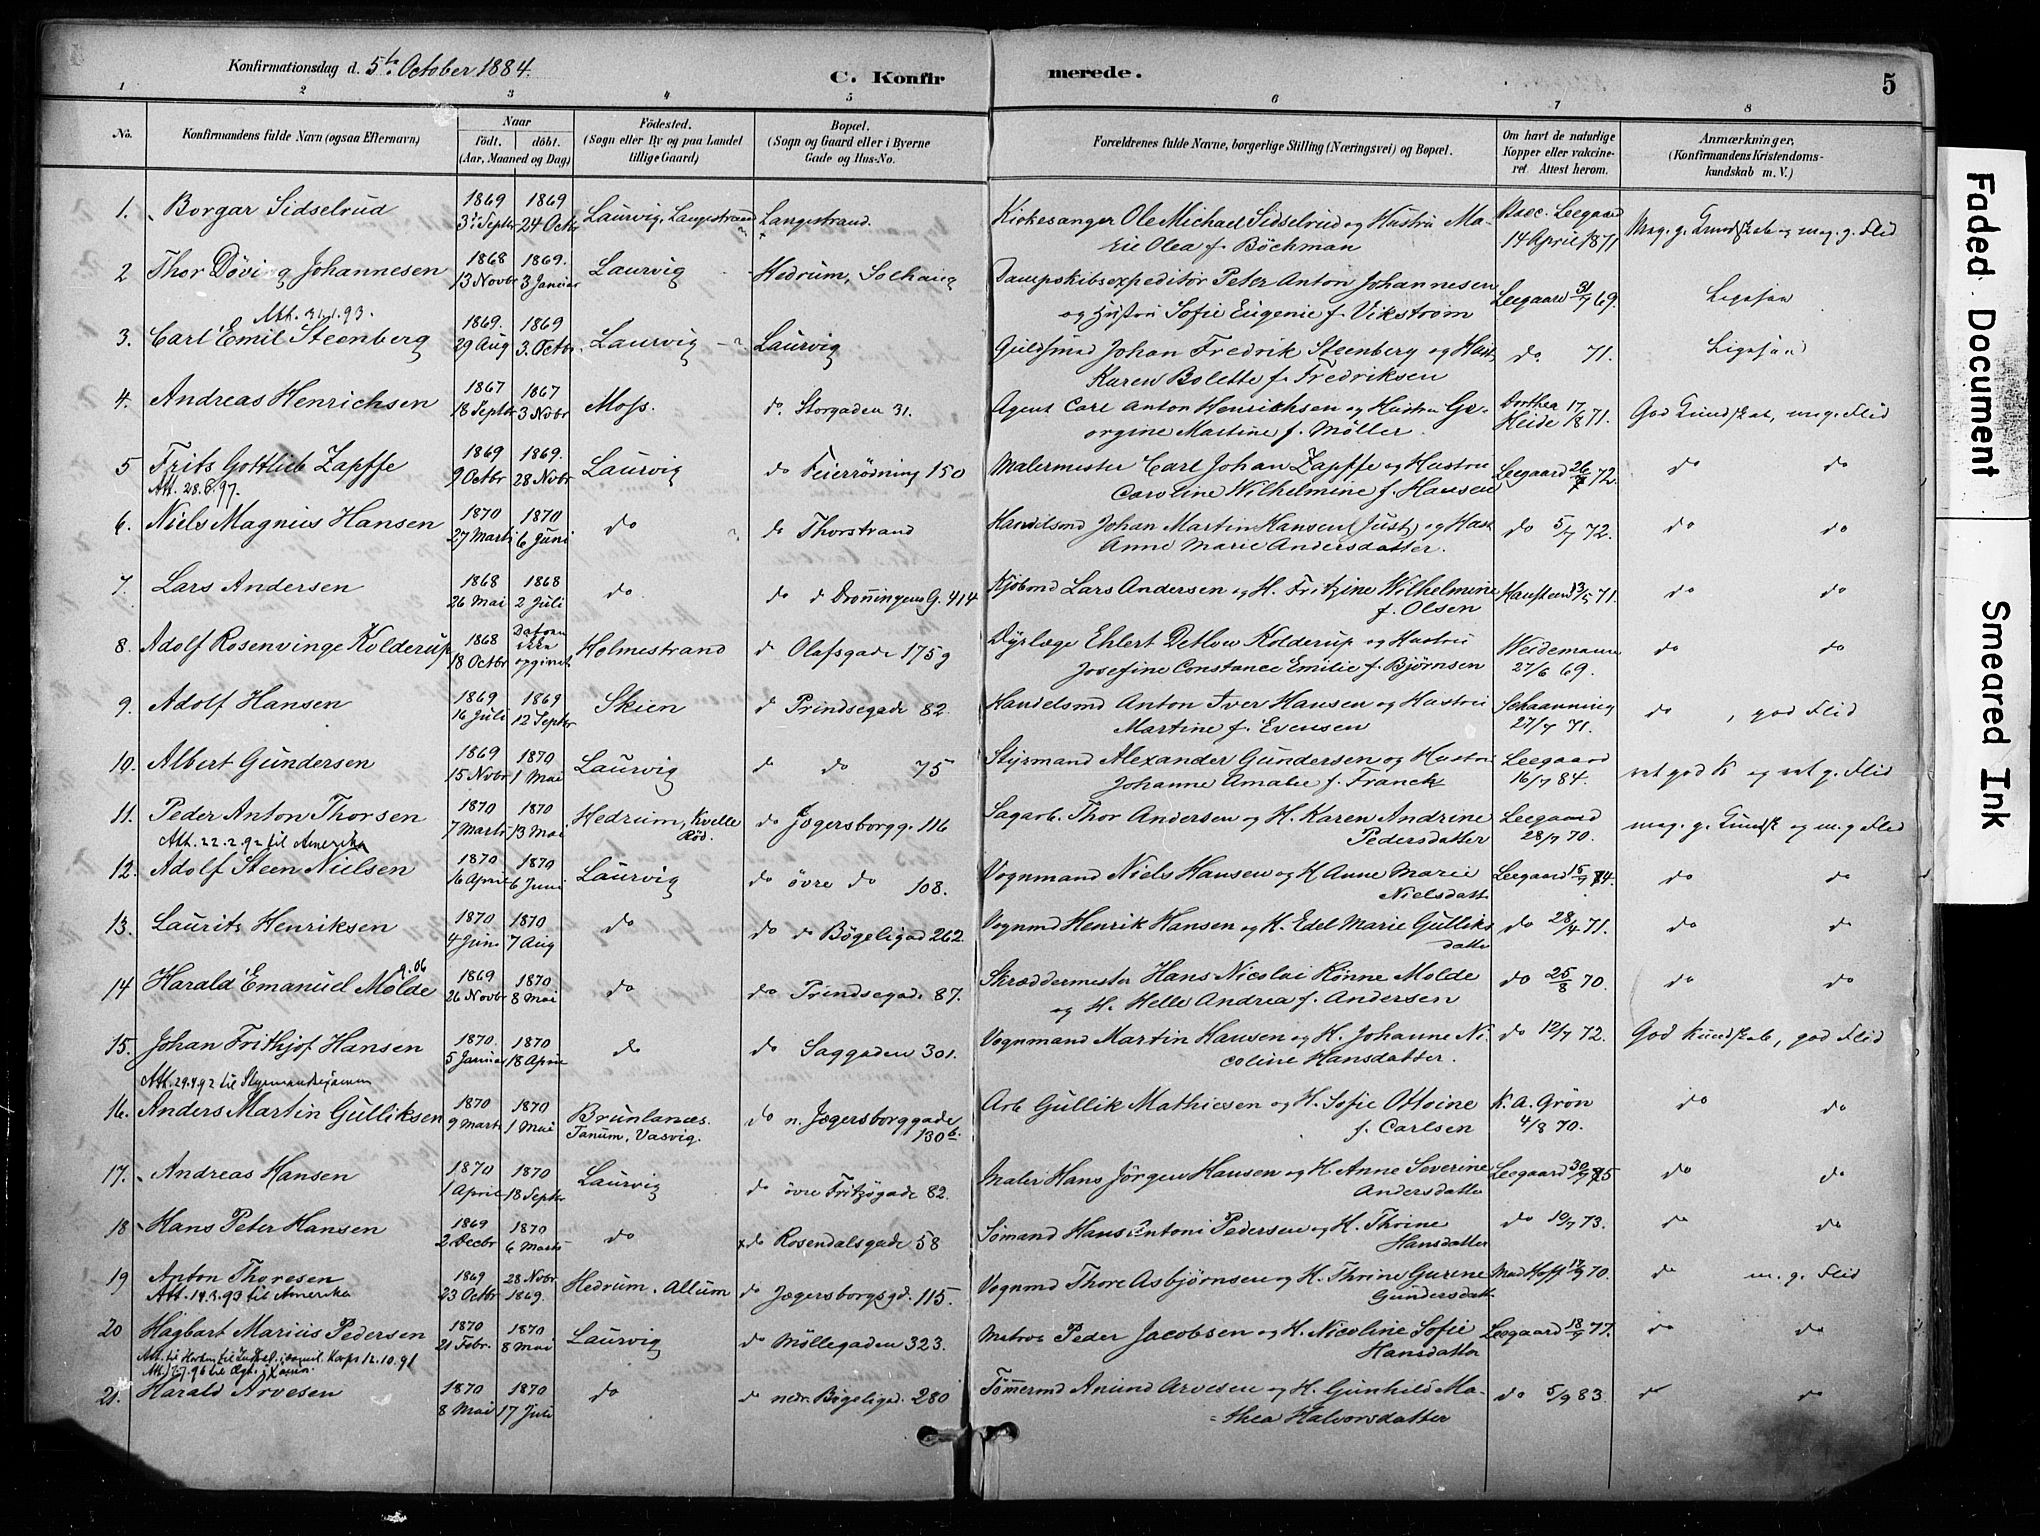 Konfirmationsdag d. 5te October 1884.
C. Konfirmerede.
5
1 2 3 4 5 6 7 8
No. Konfirmandens fulde Navn (ogsaa Efternavn) Naar födt. döbt. (Aar, Maaned og Dag) Födested. (Sogn eller By og paa Landet tillige Gaard) Bopæl. (Sogn og Gaard eller i Byerne Gade og Hus-No. Forældrenes fulde Navne, borgerlige Stilling (Næringsvei) og Bopæl. Om havt de naturlige Kopper eller vakcineret. Attest herom. Anmærkninger, (Konfirmandens Kristendomskundskab m. V.)
1. Borgar Sidselrud 1869 3 Septbr 1869 24 Octbr Laurvig, Langestrand Langestrand. Kirkesanger Ole Michael Sidselrud og Hustru Ma-
rie Olea f. Böckman Vacc. Leegaard 14 April 1871 Meg. g. Kundskab og meg. g. Flid
2 Thor Döving Johannesen 1868 13 Novbr 1869. 3 Januar Laurvig Hedrum, Solhaug Dampskibsexpeditör Peter Anton Johannesen
og Hustru Sofie Eugenie f. Vikström Leegaard 31/7 69. Ligesaa
3. Carl Emil Steenberg 1869. 29 Aug 1869 3. Octbr. Laurvig Laurvig Guldsmed Johan Fredrik Steenberg og Hust.
Karen Bolette f. Fredriksen do 71. Ligesaa
4. Andreas Henrichsen 1867 18 Septbr 1867 3 Novbr Moss. do. Storgaden 31. Agent Carl Anton Henrichsen og Hustru Ge-
orgine Martine f. Möller. Dorthea Heide 17/8 71. God Kundskab, meg. Flid
5 Frits Gottlieb Zapffe 1869 9 Octbr 1869. 28 Novbr Laurvig do Feierrödning 150 Malermester Carl Johan Zapffe og Hustru
Att. 28.6.97. Caroline Wilhelmine f. Hansen Leegaard 72. do do
6. Niels Magnus Hansen 1870 27 Marts 1870 6 Juni do do Thorstrand Handelsmd Johan Martin Hansen (Just) og Hust
Anne Marie Andersdatter. do 5/7 72. do do
7. Lars Andersen 1868 26 Mai 1868 2 Juli do do d Dronningens G. 414 Kjöbmd Lars Andersen og H. Fritzine Wilhelmine
f. Olsen 71. do do
8. Adolf Rosenvinge Kolderup 1868 18 Octbr Daaben ikke opgivet Holmestrand do Olafsgade 175 g Dyrlæge Ehlert Detlow Kolderup og Hustru
Josefine Constance Emilie f. Björnsen Weidemann 27/6 69. do do
9. Adolf Hansen 1869 16 Juli 1869 12 Septbr Skien d Prindsegade 82. Handelsmd Anton Iver Hansen og Hustru
Martine f. Evensen Schaanning 27/7 71. do, god Flid
10. Albert Gundersen 1869 15 Novbr 1870 1 Mai Laurvig do do 75 Styrmand Alexander Gundersen og Hustru
Johanne Amalie f. Franck Leegaard 16/7 84. ret god K og ret g. Flid
11. Peder Anton Thorsen 1870 7 Marts 1870 13 Mai Hedrum, Kvelle Röd. do Jægersborgg. 116 Sagarb. Thor Andersen og H. Karen Andrine
Att. 22.2.92 til Amerika Pedersdatter Leegaard 28/7 70. meg. g. Kundsk og m. g Flid
12. Adolf Steen Nielsen 1870 16 April 1870 6 Juni Laurvig do övre do 108. Vognmand Niels Hansen og H Anne Marie
Nielsdatt Leegaard 15/7 84. do do
13. Laurits Henriksen 1870 4 Juni 1870 7 Aug do do do Bögeligad 262. Vognmd Henrik Hansen og H. Edel Marie Gulliks
datter do 28/4 71. do do
14 Harald Emanuel Molde 1869 26 Novbr 1870 8 Mai do do Prindsegad. 87. Skræddermester Hans Nicolai Rönne Molde
og H. Helle Andrea f. Andersen do 25/8 70. do do
15. Johan Frithjof Hansen 1870. 5 Januar 1870 18 April do do Saggaden 301. Vognmand Martin Hansen og H. Johanne Ni-
Att. 29.4.92 til Styrmandsexamen coline Hansdatter. do 12/7 72. God Kundskab, god Flid
16. Anders Martin Gulliksen 1870 9 Marts 1870 1 Mai Brunlanæs. Tanum, Vasvig. do n. Jægersborggade 130 b. Arb Gullik Mathiesen og H. Sofie Ottoine
f. Carlsen K. A. Grön 4/8 70. do do
17. Andreas Hansen 1870 1 April 1870 18 Septbr Laurvig do övre Fritzögade 82. Maler Hans Jörgen Hansen og H. Anne Severine
Andersdatter Leegaard do do
18 Hans Peter Hansen 1869 2 Decbr 1870 6 Marts do do Rosendalsgade 58 Sömand Hans Antoni Pedersen og H. Thrine
Hansdatter do 10/7 73. do do
19 Anton Thoresen 1869 23 Octbr 28 Novbr. 1869. Hedrum. Allum do Jægersborgsgd. 115. Vognmd Thore Asbjörnsen og H. Thrine Gurine
Att. 14.3.93 til Amerika Gundersdatt. 70. do m. g. Flid
20 Hagbart Marius Pedersen 1870 21 Febr. 1870 8 Mai Laurvig do Möllegaden 323. Matros Peder Jacobsen og H. Nicoline Sofie
Hansdatter Leegaard 18/9 77. do do
21. Harald Arvesen 1870 8 Mai 1870 17 Juli do do nedr. Bögeligad. 280 Tömermd Anund Arvesen og H. Gunhild Ma-
thea Halvorsdatter do 5/9 83. do do
Faded Document
Smeared Ink